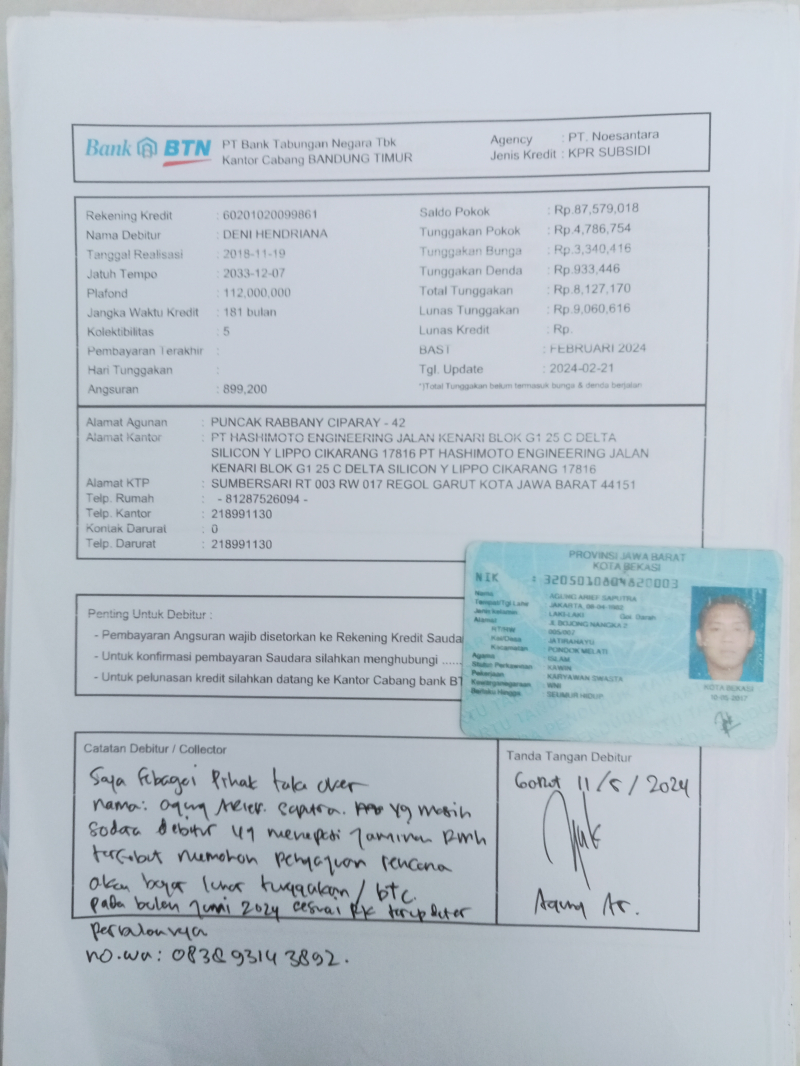 Bank BTN
PT Bank Tabungan Negara Tbk
Kantor Cabang BANDUNG TIMUR
Agency : PT. Noesantara
Jenis Kredit : KPR SUBSIDI
Rekening Kredit : 60201020099861
Nama Debitur : DENI HENDRIANA
Tanggal Realisasi : 2018-11-19
Jatuh Tempo : 2033-12-07
Plafond : 112,000,000
Jangka Waktu Kredit : 181 bulan
Kolektibilitas : 5
Pembayaran Terakhir :
Hari Tunggakan :
Angsuran : 899,200
Saldo Pokok : Rp.87,579,018
Tunggakan Pokok : Rp.4,786,754
Tunggakan Bunga : Rp.3,340,416
Tunggakan Denda : Rp.933,446
Total Tunggakan : Rp.8,127,170
Lunas Tunggakan : Rp.9,060,616
Lunas Kredit : Rp.
BAST : FEBRUARI 2024
Tgl. Update : 2024-02-21
*)Total Tunggakan belum termasuk bunga & denda berjalan
Alamat Agunan : PUNCAK RABBANY CIPARAY - 42
Alamat Kantor : PT HASHIMOTO ENGINEERING JALAN KENARI BLOK G1 25 C DELTA
SILICON Y LIPPO CIKARANG 17816 PT HASHIMOTO ENGINEERING JALAN
KENARI BLOK G1 25 C DELTA SILICON Y LIPPO CIKARANG 17816
Alamat KTP : SUMBERSARI RT 003 RW 017 REGOL GARUT KOTA JAWA BARAT 44151
Telp. Rumah : - 81287526094 -
Telp. Kantor : 218991130
Kontak Darurat : 0
Telp. Darurat : 218991130
PROVINSI JAWA BARAT
KOTA BEKASI
NIK : 3205010804820003
Nama : AGUNG ARIEF SAPUTRA
Tempat/Tgl Lahir : JAKARTA, 08-04-1982
Jenis kelamin : LAKI-LAKI Gol. Darah
Alamat : JL BOJONG NANGKA 2
RT/RW : 005/002
Kel/Desa : JATIRAHAYU
Kecamatan : PONDOK MELATI
Agama : ISLAM
Status Perkawinan : KAWIN
Pekerjaan : KARYAWAN SWASTA
Kewarganegaraan : WNI
Berlaku Hingga : SEUMUR HIDUP
KOTA BEKASI
Penting Untuk Debitur :
- Pembayaran Angsuran wajib disetorkan ke Rekening Kredit Sauda
- Untuk konfirmasi pembayaran Saudara silahkan menghubungi .....
- Untuk pelunasan kredit silahkan datang ke Kantor Cabang bank BT
Catatan Debitur / Collector
Saya sebagai Pihak take over
nama: agung Arief saputra. yg masih
sodara debitur yg menepati Jaminan RMH
tersebut memohon pengajuan rencana
akan bayar lunas tunggakan / btc.
pada bulan Juni 2024 sesuai
no.wa: 083893143892.
Tanda Tangan Debitur
Garut 11/5/2024
Agung Ar.